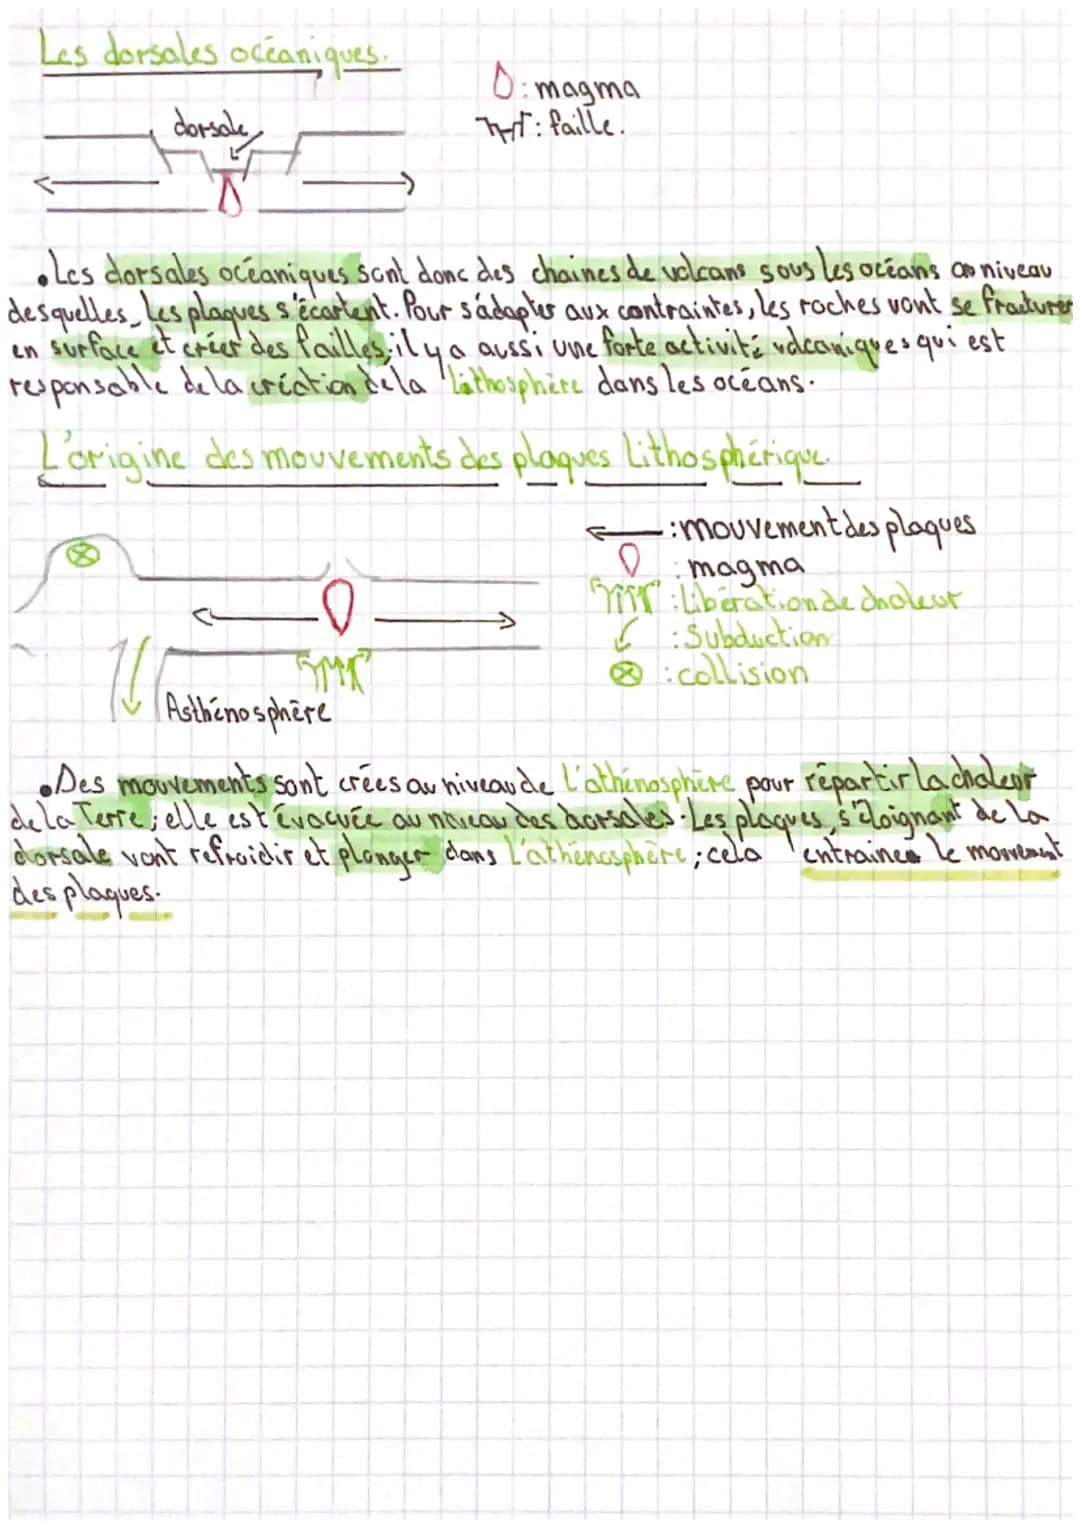 Les dorsales océaniques.
: magma
dorsale
: faille.
• Les dorsales océaniques sont donc des chaines de volcans sous les océans au niveau
desquelles les plaques s'écartent. Pour s'adapter aux contraintes, les roches vont se fracturer
en surface et créer des failles; il y a aussi une forte activité volcaniques qui est
responsable de la création de la lithosphère dans les océans.
L'origine des mouvements des plaques Lithosphérique.
: mouvement des plaques
: magma
: Libération de chaleur
: Subduction
: collision
Asthénosphère
• Des mouvements sont crées au niveau de l'athénosphère pour répartir la chaleur
de la Terre; elle est évacuée au niveau des dorsales. Les plaques, s'éloignant de la
dorsale vont refroidir et plonger dans l'athénosphère; cela entraine le mouvement
des plaques.